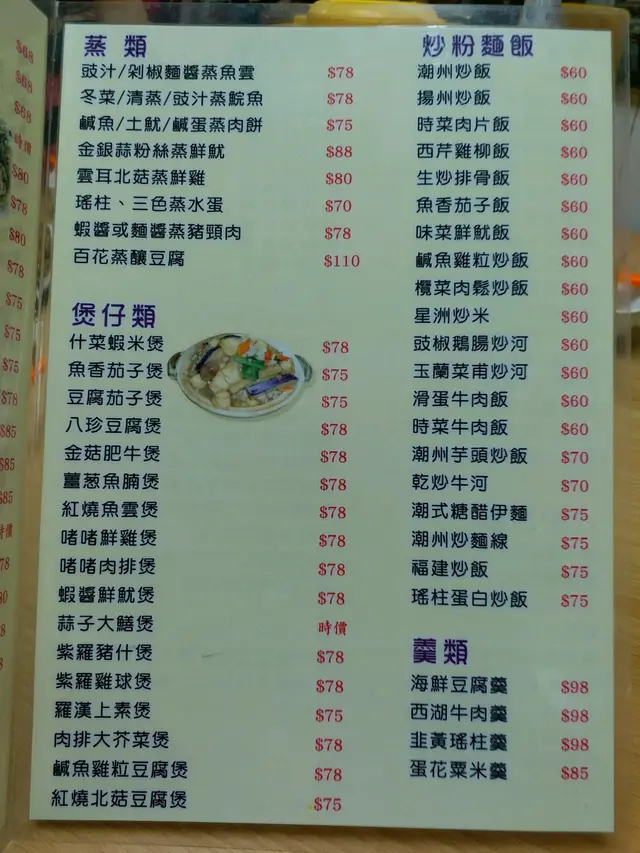 蒸 類
豉汁/剁椒麵醬蒸魚雲 $78
冬菜/清蒸/豉汁蒸鯇魚 $78
鹹魚/土魷/鹹蛋蒸肉餅 $75
金銀蒜粉絲蒸鮮魷 $88
雲耳北菇蒸鮮雞 $80
瑤柱、三色蒸水蛋 $70
蝦醬或麵醬蒸豬頸肉 $78
百花蒸釀豆腐 $110
煲仔類
什菜蝦米煲 $78
魚香茄子煲 $75
豆腐茄子煲 $75
八珍豆腐煲 $78
金菇肥牛煲 $78
薑葱魚腩煲 $78
紅燒魚雲煲 $78
啫啫鮮雞煲 $78
啫啫肉排煲 $78
蝦醬鮮魷煲 $78
蒜子大鱔煲 時價
紫羅豬什煲 $78
紫羅雞球煲 $78
羅漢上素煲 $75
肉排大芥菜煲 $78
鹹魚雞粒豆腐煲 $78
紅燒北菇豆腐煲 $75
炒粉麵飯
潮州炒飯 $60
揚州炒飯 $60
時菜肉片飯 $60
西芹雞柳飯 $60
生炒排骨飯 $60
魚香茄子飯 $60
味菜鮮魷飯 $60
鹹魚雞粒炒飯 $60
欖菜肉鬆炒飯 $60
星洲炒米 $60
豉椒鵝腸炒河 $60
玉蘭菜甫炒河 $60
滑蛋牛肉飯 $60
時菜牛肉飯 $60
潮州芋頭炒飯 $70
乾炒牛河 $70
潮式糖醋伊麵 $75
潮州炒麵線 $75
福建炒飯 $75
瑤柱蛋白炒飯 $75
羹類
海鮮豆腐羹 $98
西湖牛肉羹 $98
韭黃瑤柱羹 $98
蛋花粟米羹 $85